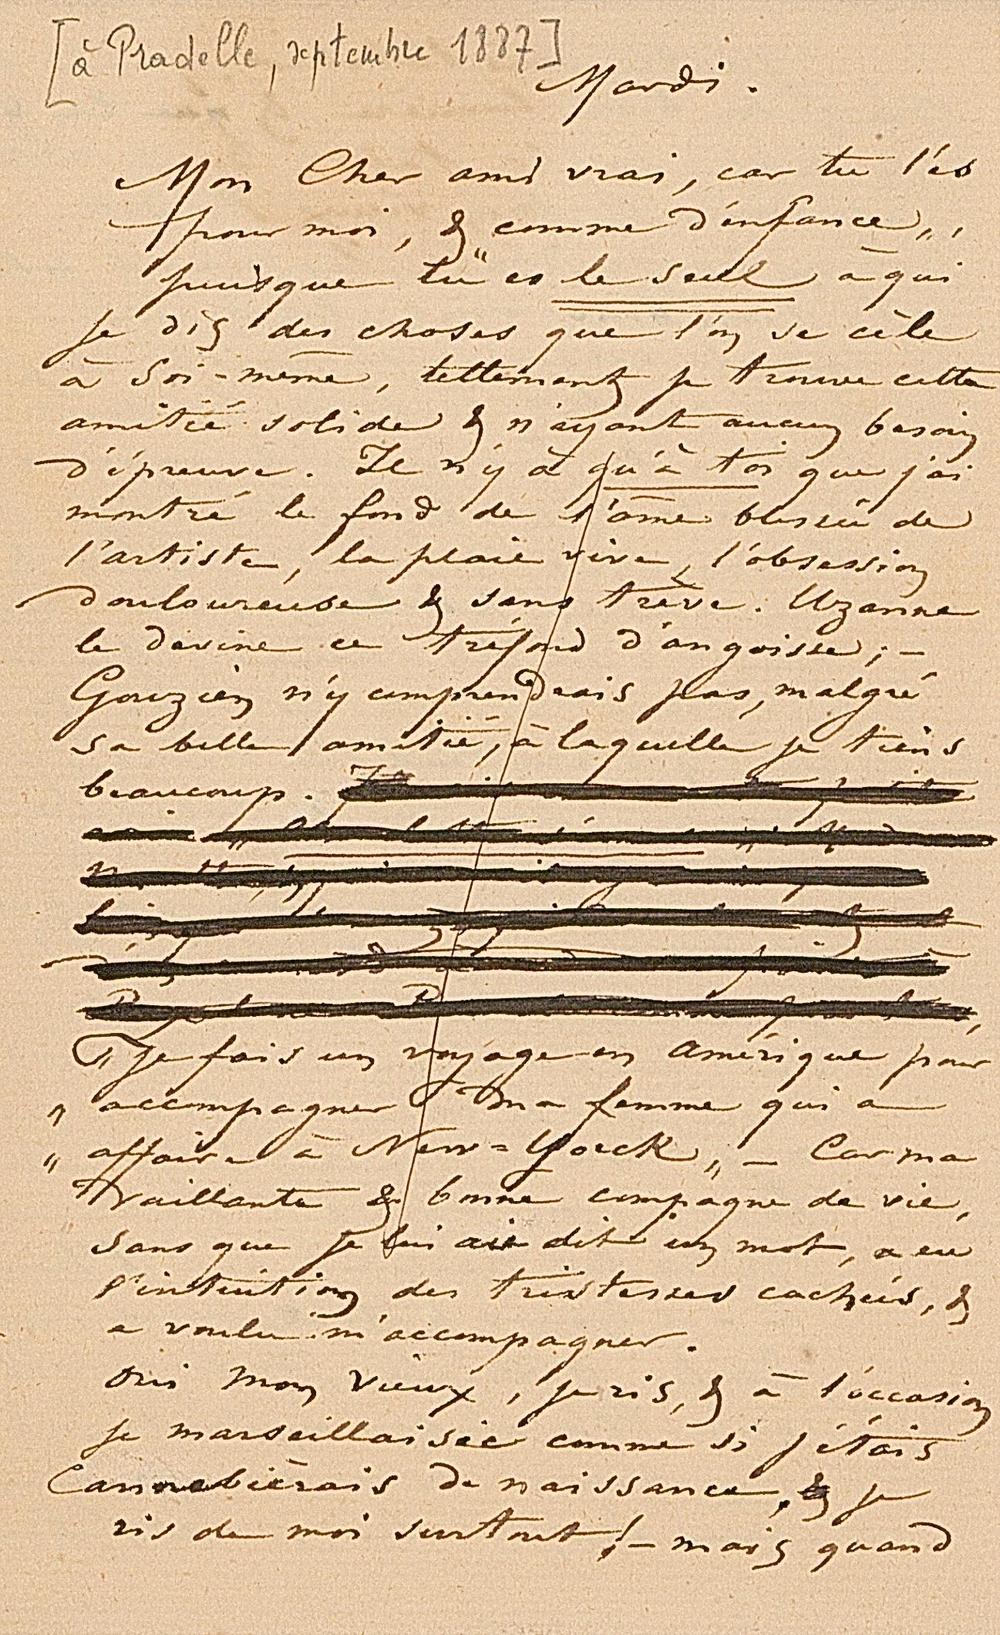 [à Pradelle, septembre 1887]
Mardi.
Mon Cher ami vrai, car tu l'és
pour moi, & "comme d'enfance",
puisque tu es le seul à qui
je dis des choses que l'on se cèle
à Soi-même, tellement je trouve cette
amitié solide & n'ayant aucun besoin
d'épreuve. Il n'y à qu'à toi que j'ai
montré le fond de l'âme blessée de
l'artiste, la plaie vive, l'obsession
douloureuse & sans trève. Uzanne
le devine ce tréfond d'angoisse; –
Gouzien n'y comprendrais pas, malgré
sa belle amitié, à laquelle je tiens
beaucoup.
"je fais un voyage en Amérique pour
" accompagner ma femme qui a
" affaire à New=Yorck" – Car ma
vaillante & bonne compagne de vie,
sans que je lui aie dit un mot, a eu
l'intuition des tristesses cachées, &
a voulu m'accompagner.
Oui mon vieux, je ris, & à l'occasion
je marseillaisée comme si j'étais
Cannebièrais de naissance, & je
ris de moi surtout! – mais quand